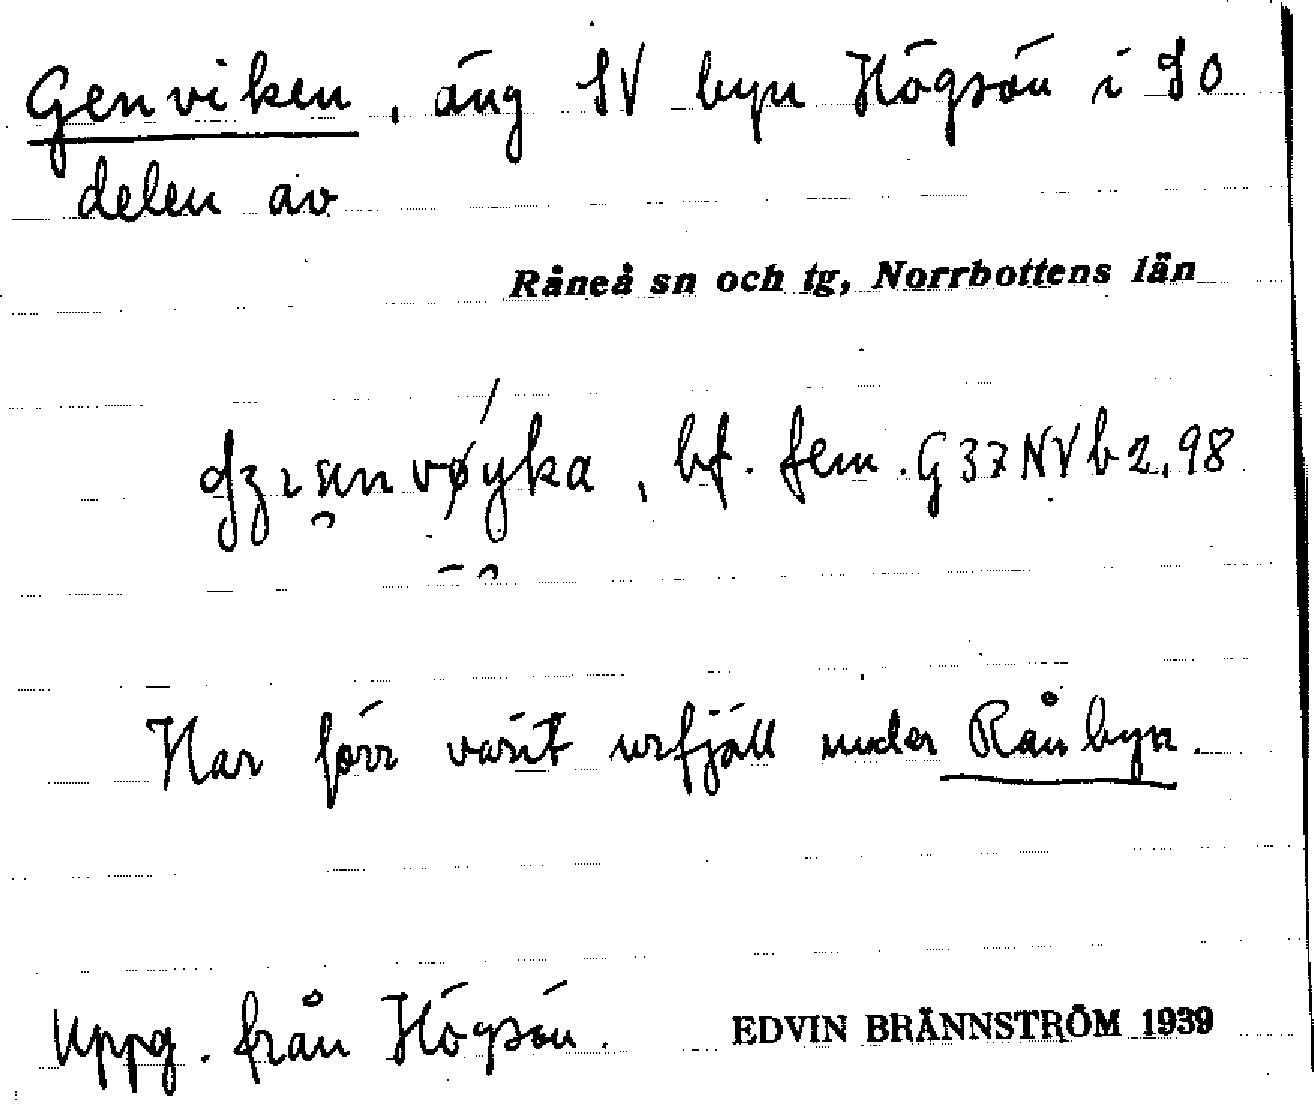 Genviken, äng SV byn Högsön i SO
delen av
Råneå sn och tg, Norrbottens län
, bf. fem. G37NVb2,98
Har förr varit urfjäll under Rånbyn.
Uppg. från Högsön. EDVIN BRÄNNSTRÖM 1939